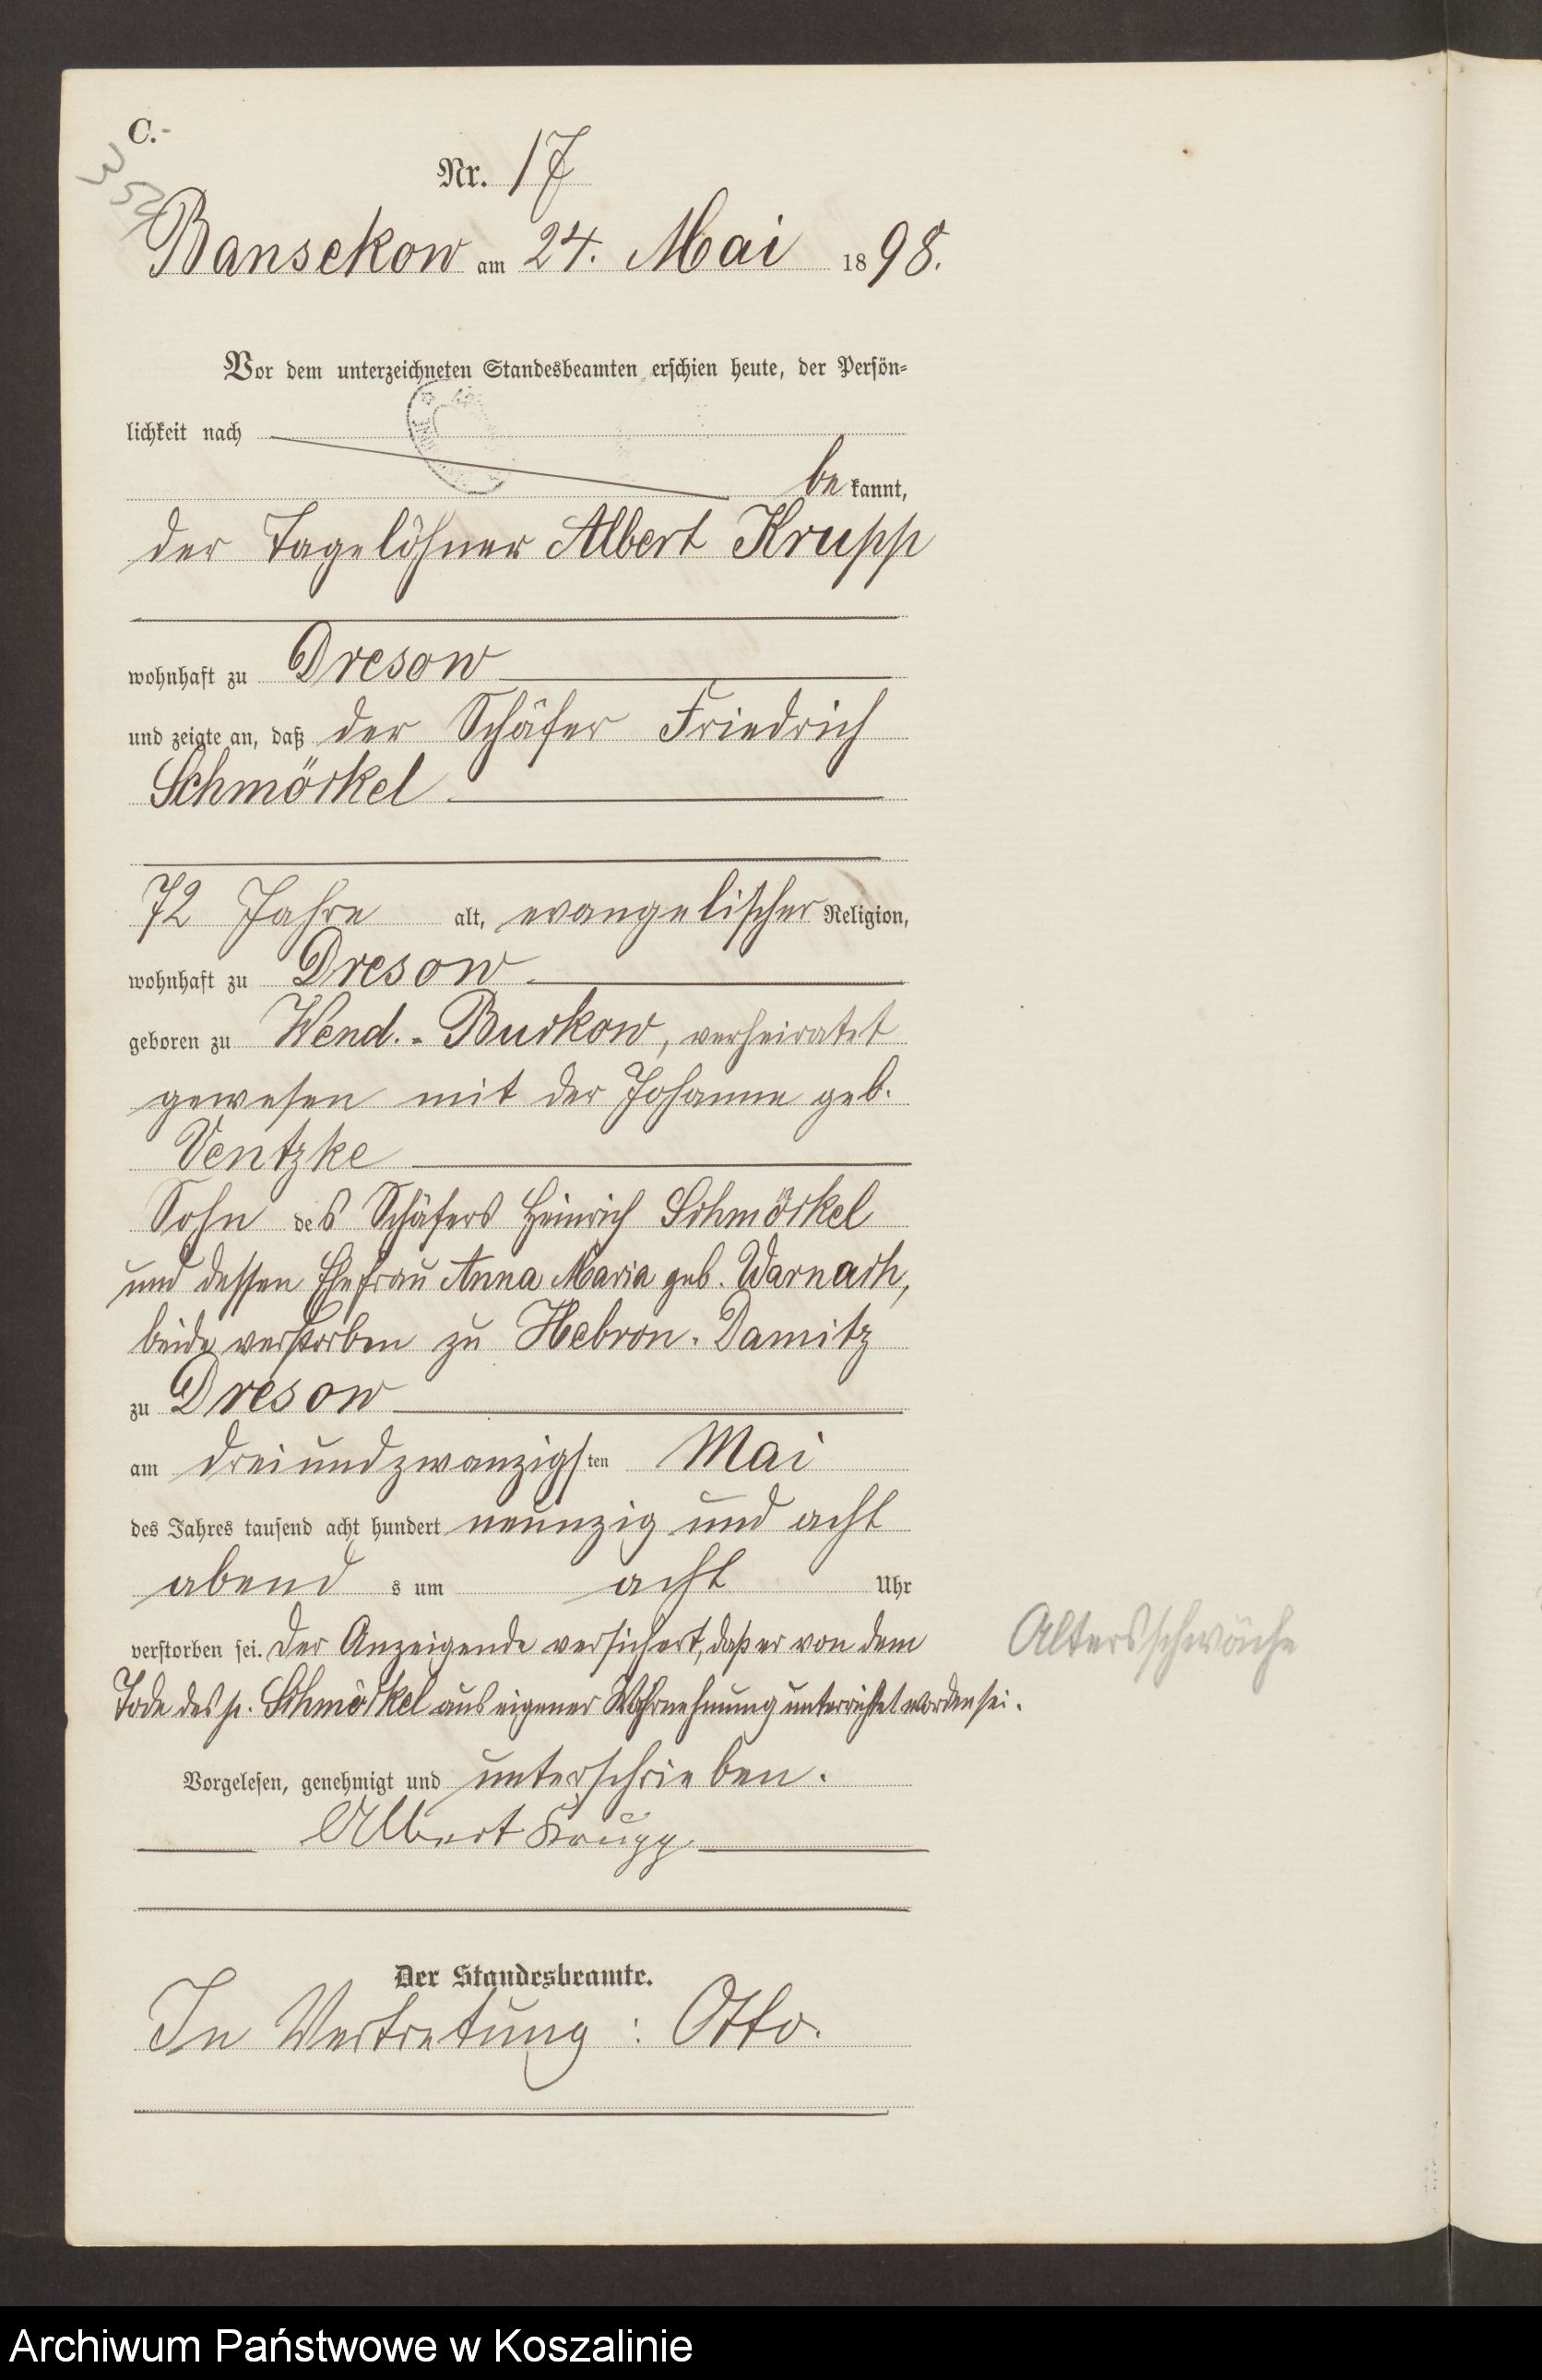 C.
Nr. 17
Bansekow am 24. Mai 1898.
Vor dem unterzeichneten Standesbeamten erschien heute, der Persön-
lichkeit nach
be kannt,
der Tagelöhner Albert Krupp
wohnhaft zu Dresow
und zeigte an, daß der Schäfer Friedrich
Schmörkel
72 Jahre alt, evangelischer Religion,
wohnhaft zu Dresow
geboren zu Wend.-Buckow, verheiratet
gewesen mit der Johanne geb.
Ventzke
Sohn des Schäfers Heinrich Schmörkel
und dessen Ehefrau Anna Maria geb. Warnach,
beide verstorben zu Hebron-Damitz
zu Dresow
am dreiundzwanzigsten Mai
des Jahres tausend acht hundert neunzig und acht
abend s um acht Uhr
verstorben sei. Der Anzeigende versichert, daß er von dem
Altersschwäche
Tode des p. Schmörkel aus eigener Wahrnehmung unterrichtet worden sei.
Vorgelesen, genehmigt und unterschrieben.
Albert Krupp
Der Standesbeamte.
In Vertretung: Otto.
Archiwum Państwowe w Koszalinie